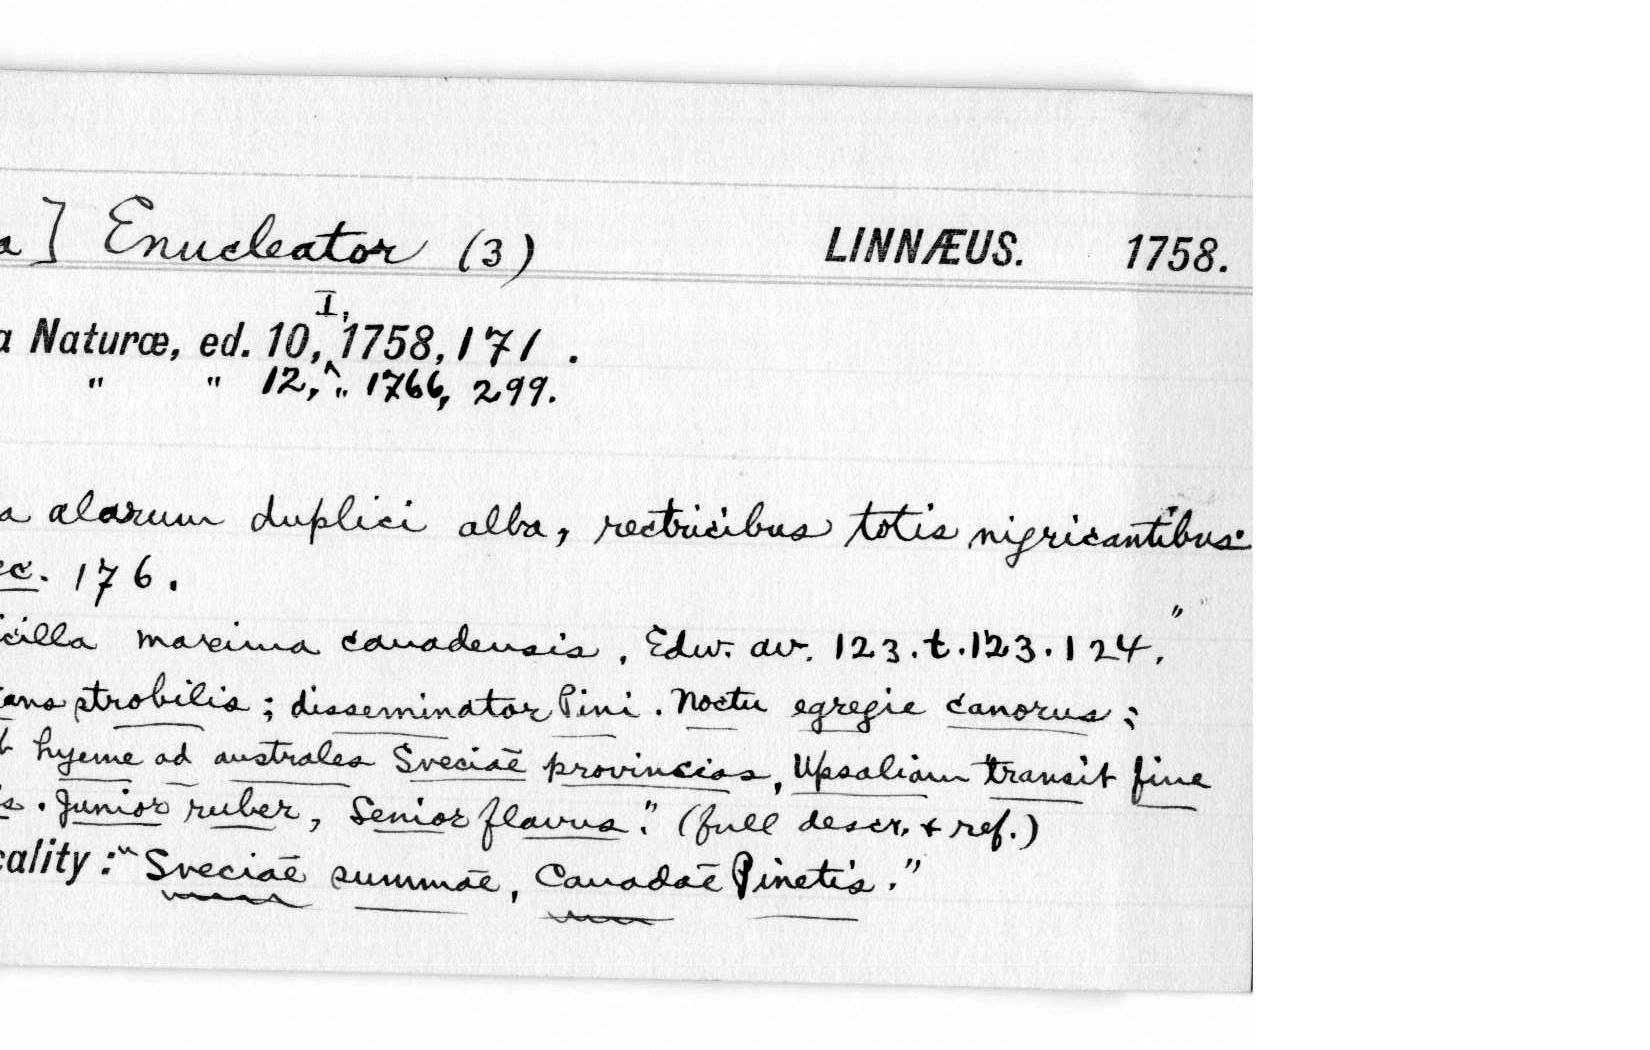 a] Enucleator (3) LINNÆUS. 1758.
I,
a Naturæ, ed. 10, 1758, 171.
" " 12, " 1766, 299.
a alarum duplici alba, rectricibus totis nigricantibus.
ec. 176.
cilla maxima canadensis. Edw. av. 123. t. 123. 124."
ans strobilis; disseminator Pini. Noctu egregie canorus;
t hyeme ad australes Sveciæ provincias, Upsaliam transit fine
is. Junior ruber, Senior flavus." (full descr. & ref.)
cality: "Sveciæ summæ, Canadæ Pinetis."